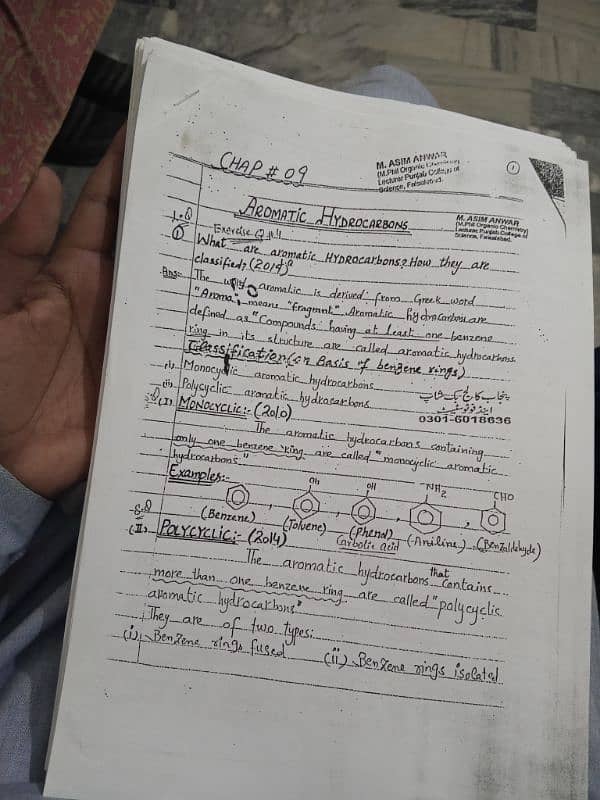 CHAP # 09
M. ASIM ANWAR
(M.Phil Organic Chemistry)
Lecturer Punjab College of
Science, Faisalabad.
1
AROMATIC HYDROCARBONS
M. ASIM ANWAR
(M.Phil Organic Chemistry)
Lecturer Punjab College of
Science, Faisalabad.
Exercise Q
① What are aromatic HYDROCARBONS? How they are
classified? (2019)
Ans:- The aromatic is derived from Greek word
"Aroma", means "fragment". Aromatic hydrocarbon are
defined as "Compounds having at least one benzene
ring in its structure are called aromatic hydrocarbons
Classification (on Basis of benzene rings)
(i) Monocyclic aromatic hydrocarbons
(ii) Polycyclic aromatic hydrocarbons
پنجاب کالج بک شاپ
اینڈ فوٹوسٹیٹ
0301-6018636
S.Q
(I) MONOCYCLIC:- (2010)
The aromatic hydrocarbons containing
only one benzene ring are called "monocyclic aromatic
hydrocarbons"
Examples:-
OH NH2 CHO
(Benzene) , (Toluene) , (Phenol) , (Aniline) , (Benzaldehyde)
Carbolic acid
S.Q
(II) POLYCYCLIC:- (2014)
The aromatic hydrocarbons that contains
more than one benzene ring are called "polycyclic
aromatic hydrocarbons"
They are of two types:
(i) Benzene rings fused (ii) Benzene rings isolated